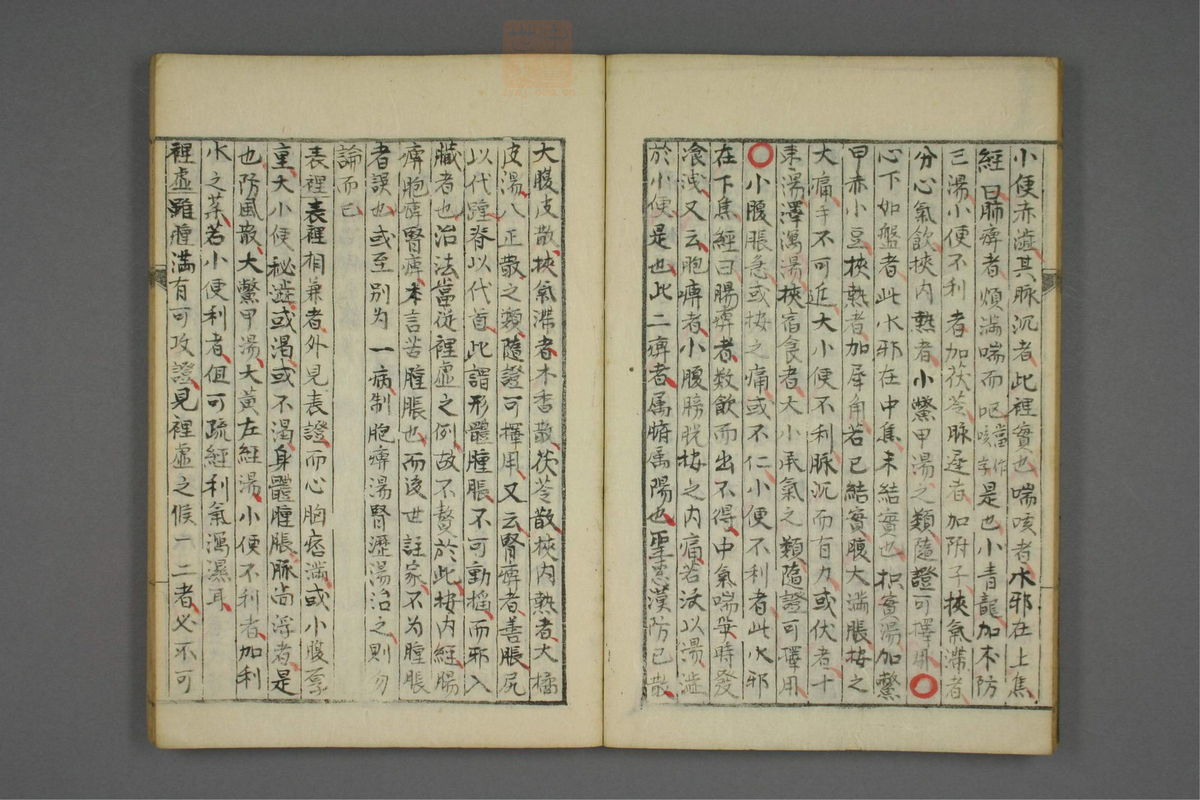 小便赤澁其脉沉者此裡實也喘咳者水邪在上焦
經曰肺痺者煩滿喘而呕當作咳字是也小青龍加木防
三湯小便不利者加茯苓脉遲者加附子挾氣滯者
分心氣飲挾内熱者小鱉甲湯之類隨證可擇用〇
心下如盤者此水邪在中焦未結實也枳實湯加鱉
甲赤小豆挾熱者加犀角若已結實腹大滿脹按之
大痛手不可近大小便不利脉沉而有力或伏者十
棗湯澤瀉湯挾宿食者大小承氣之類隨證可擇用
〇小腹脹急或按之痛或不仁小便不利者此水邪
在下焦經曰腸痺者数飲而出不得中氣喘爭時發
飧洩又云胞痺者小腹膀胱按之内痛若沃以湯澁
於小便是也此二痺者属腑属陽也聖惠漢防已散
大腹皮散挾氣滯者木香散茯苓散挾内熱者大橘
皮湯八正散之類隨證可擇用又云腎痺者善脹尻
以代踵脊以代首此謂形體腫脹不可動搖而邪入
臓者也治法當從裡虚之例故不贅於此按内經腸
痺胞痺腎痺本言苦腫脹也而後世註家不为腫脹
者誤也或至别为一病制胞痺湯腎瀝湯治之則勿
論而已
表裡表裡相兼者外見表證而心胸痞滿或小腹厚
重大小便秘澁或渴或不渴身體腫脹脉尚浮者是
也防風散大鱉甲湯大黄左經湯小便不利者加利
水之茱若小便利者但可疏經利氣瀉濕耳
裡虚雖腫滿有可攻證見裡虚之候一二者必不可